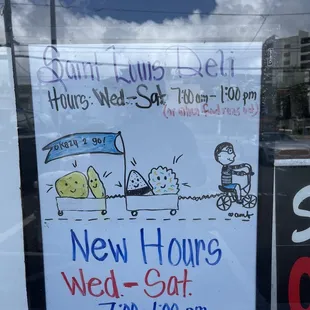 Saint Louis Deli
Hours: Wed.-Sat. 7:00 am - 1:00 pm
(or when food runs out)
okazu 2 go!
New Hours
Wed.-Sat.
7:00-1:00 pm